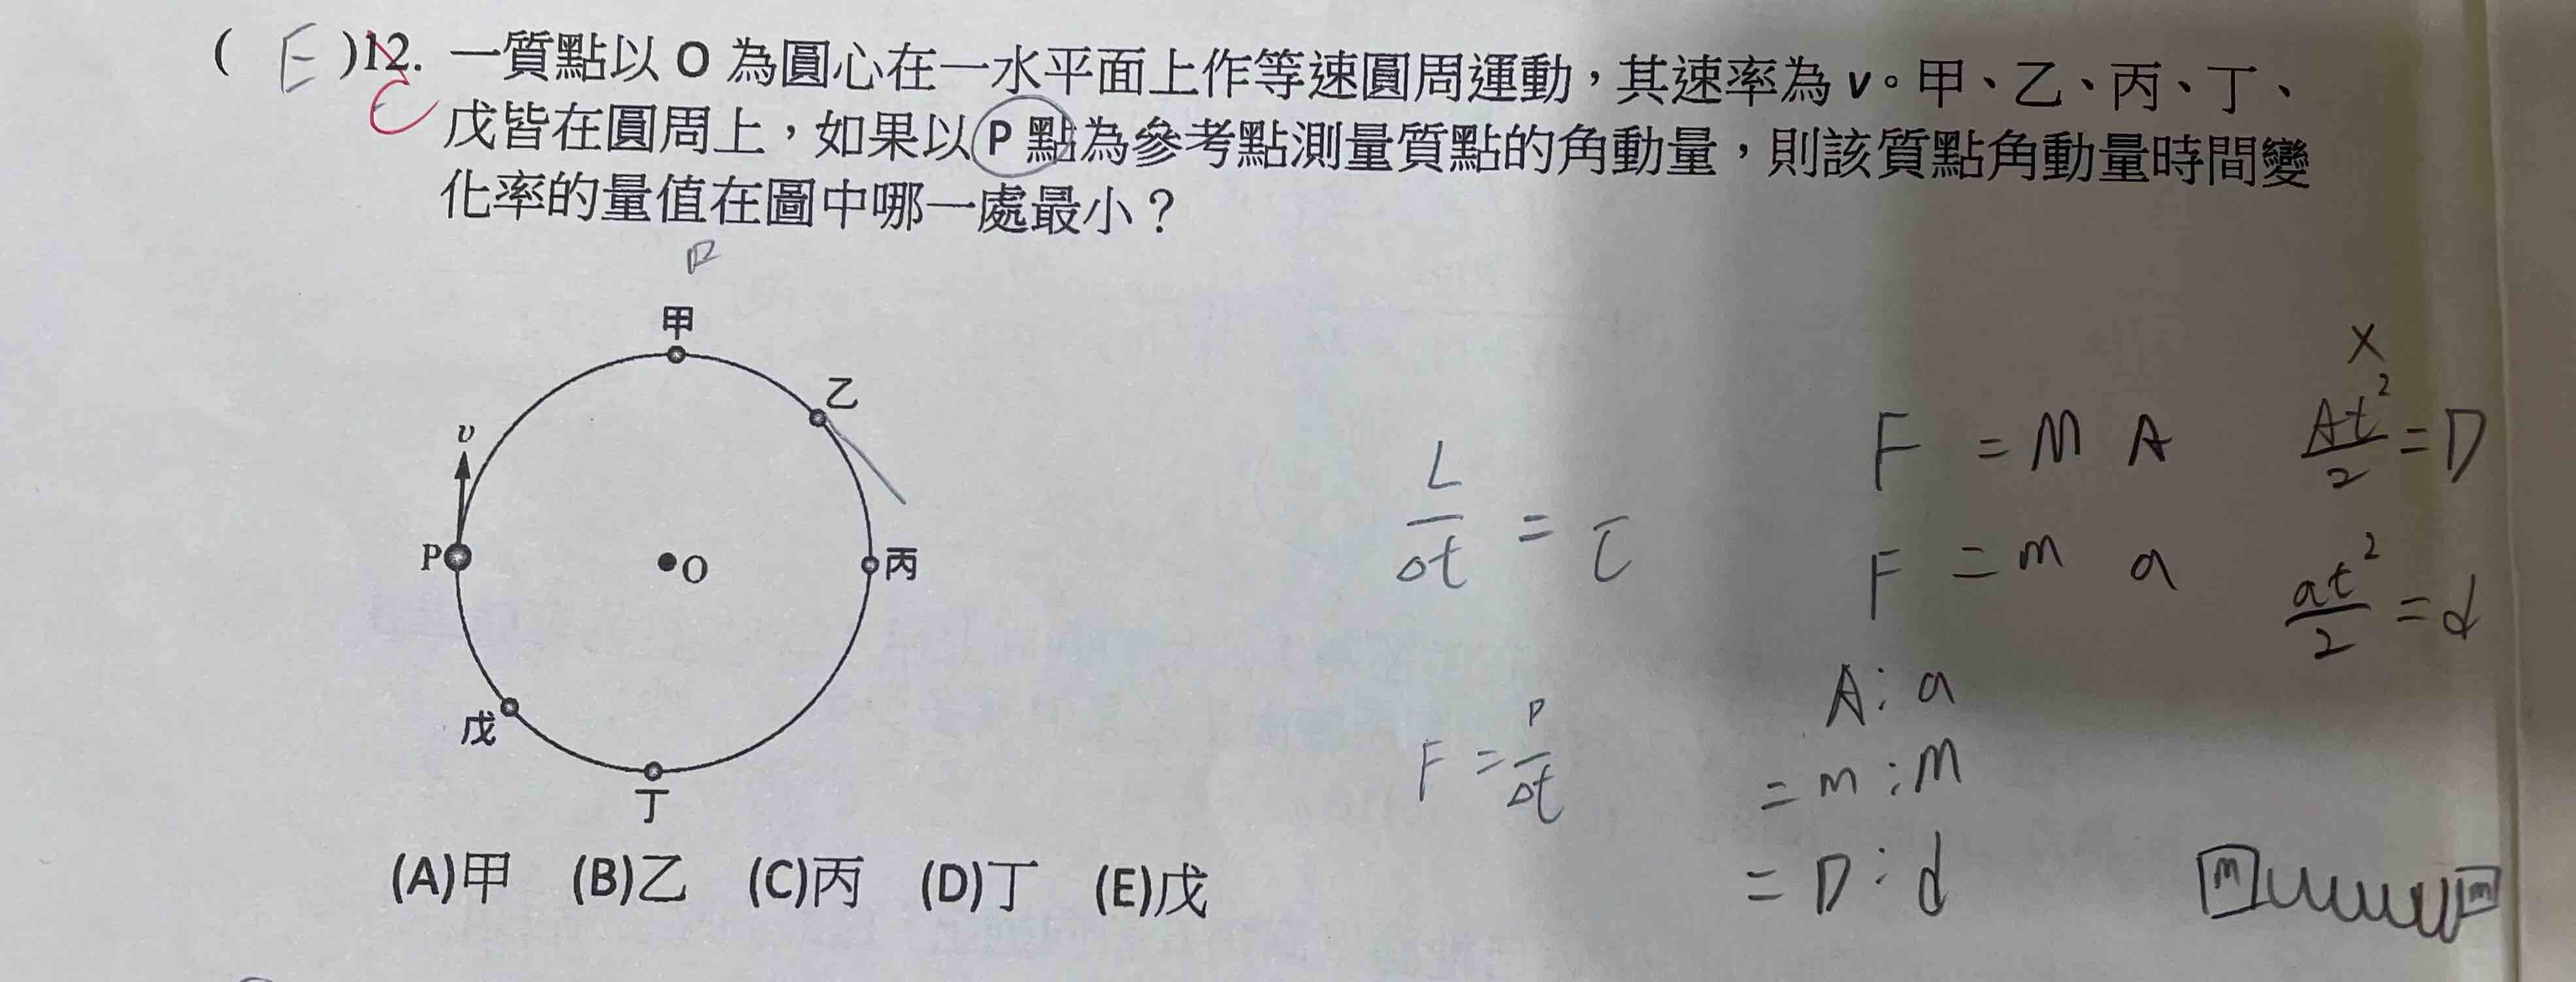 ( E )12. 一質點以 O 為圓心在一水平面上作等速圓周運動，其速率為 v。甲、乙、丙、丁、
C
戊皆在圓周上，如果以 P 點為參考點測量質點的角動量，則該質點角動量時間變
化率的量值在圖中哪一處最小？
甲
乙
υ
P
O
丙
戊
丁
L/Δt = τ
F = P/Δt
F = M A
F = m a
A : a
= m : M
= D : d
x
At²/2 = D
at²/2 = d
m
m
(A)甲 (B)乙 (C)丙 (D)丁 (E)戊